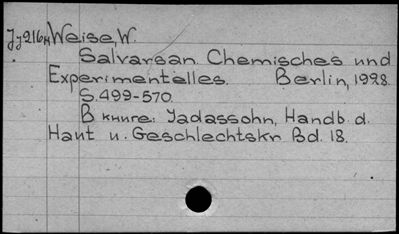 Jy216H Weise W.
Salvarsan. Chemisches und
Experimentelles. Berlin, 1928.
S.499-570.
В книге: Jadassohn, Handb. d.
Haut u. Geschlechtskr. Bd. 18.